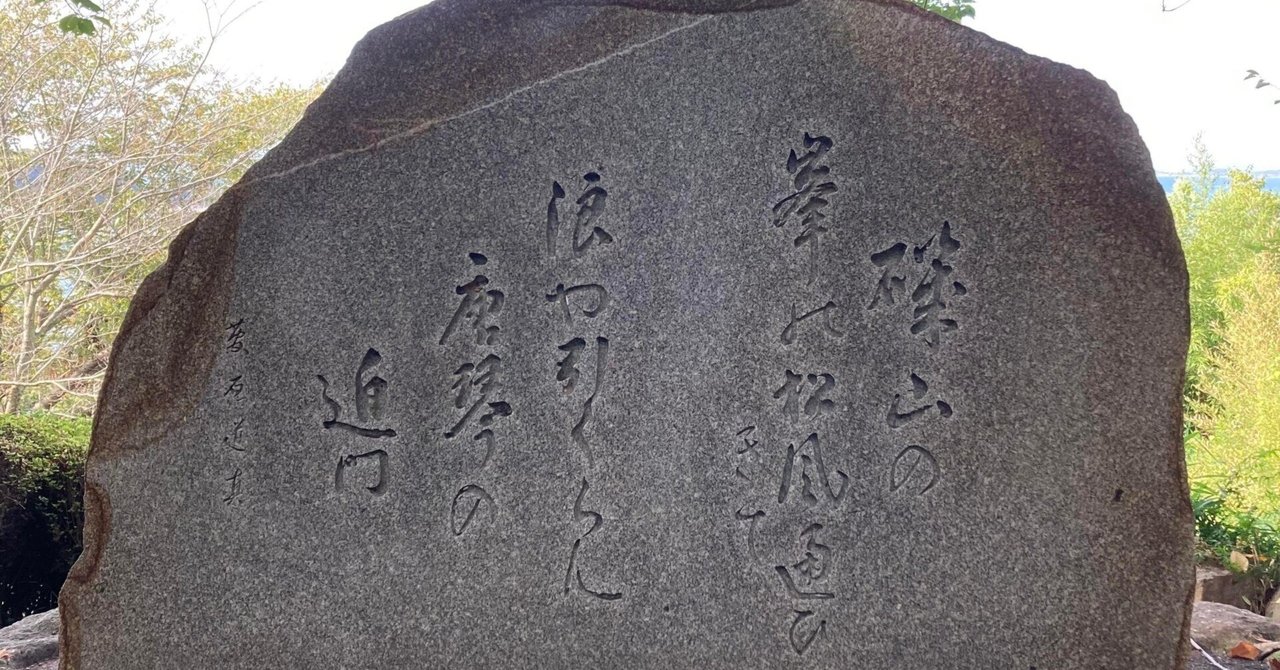 磯山の
峯の松風通ひ
きて
浪や引くらん
唐琴の
迫門
菅原道真